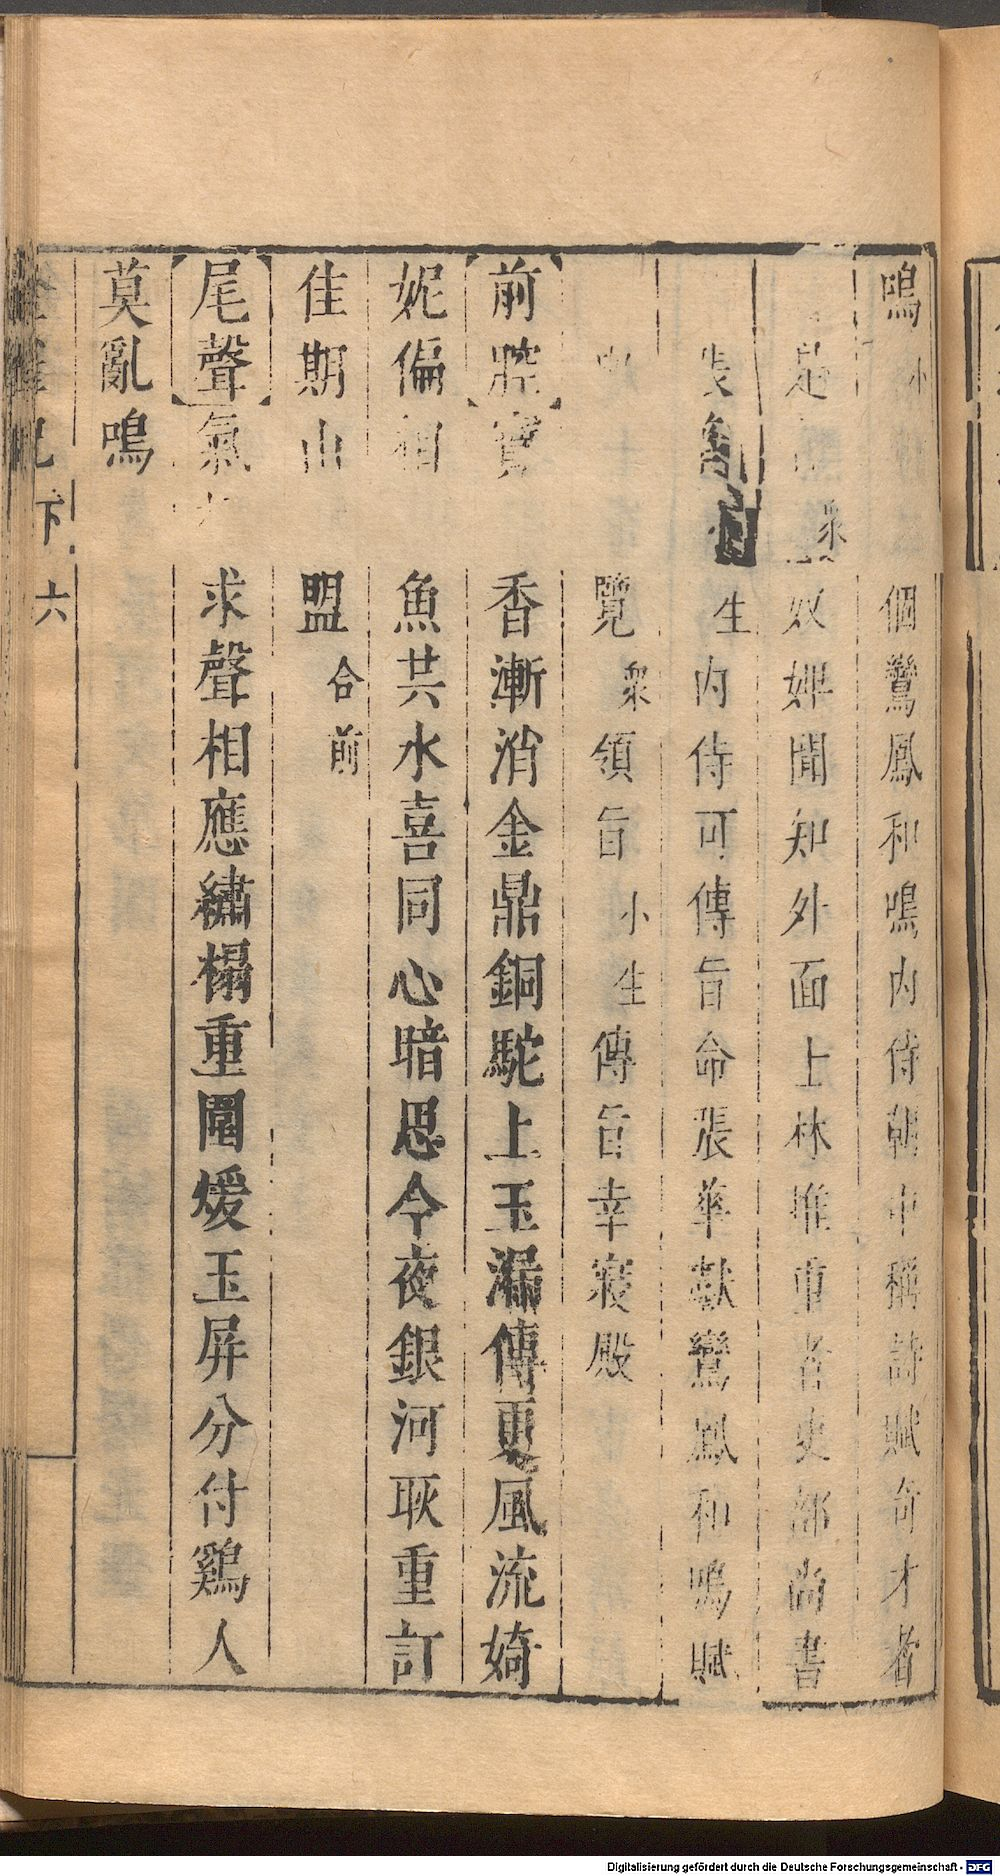 鳴小個鸞鳳和鳴內侍朝中稱詩賦奇才者
是衆奴婢聞知外面上林惟重者吏部尚書
張生內侍可傳旨命張華獻鸞鳳和鳴賦
覽衆領旨小生傳旨幸寢殿
前腔寶香漸消金鼎銅駝上玉漏傳更風流婍
妮偏相魚共水喜同心暗思今夜銀河耿重訂
佳期山盟合前
尾聲氣求聲相應繡榻重圍煖玉屏分付鷄人
莫亂鳴
記下六
Digitalisierung gefördert durch die Deutsche Forschungsgemeinschaft - DFG